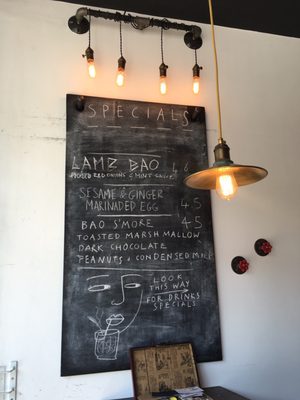 SPECIALS
LAMZ BAO 6
PICKLED RED ONIONS & MINT SAUCE
SESAME & GINGER
MARINADED EGG 4.5
BAO S'MORE 4.5
TOASTED MARSHMALLOW
DARK CHOCOLATE
PEANUTS & CONDENSED MILK
LOOK
THIS WAY
FOR DRINKS
SPECIALS